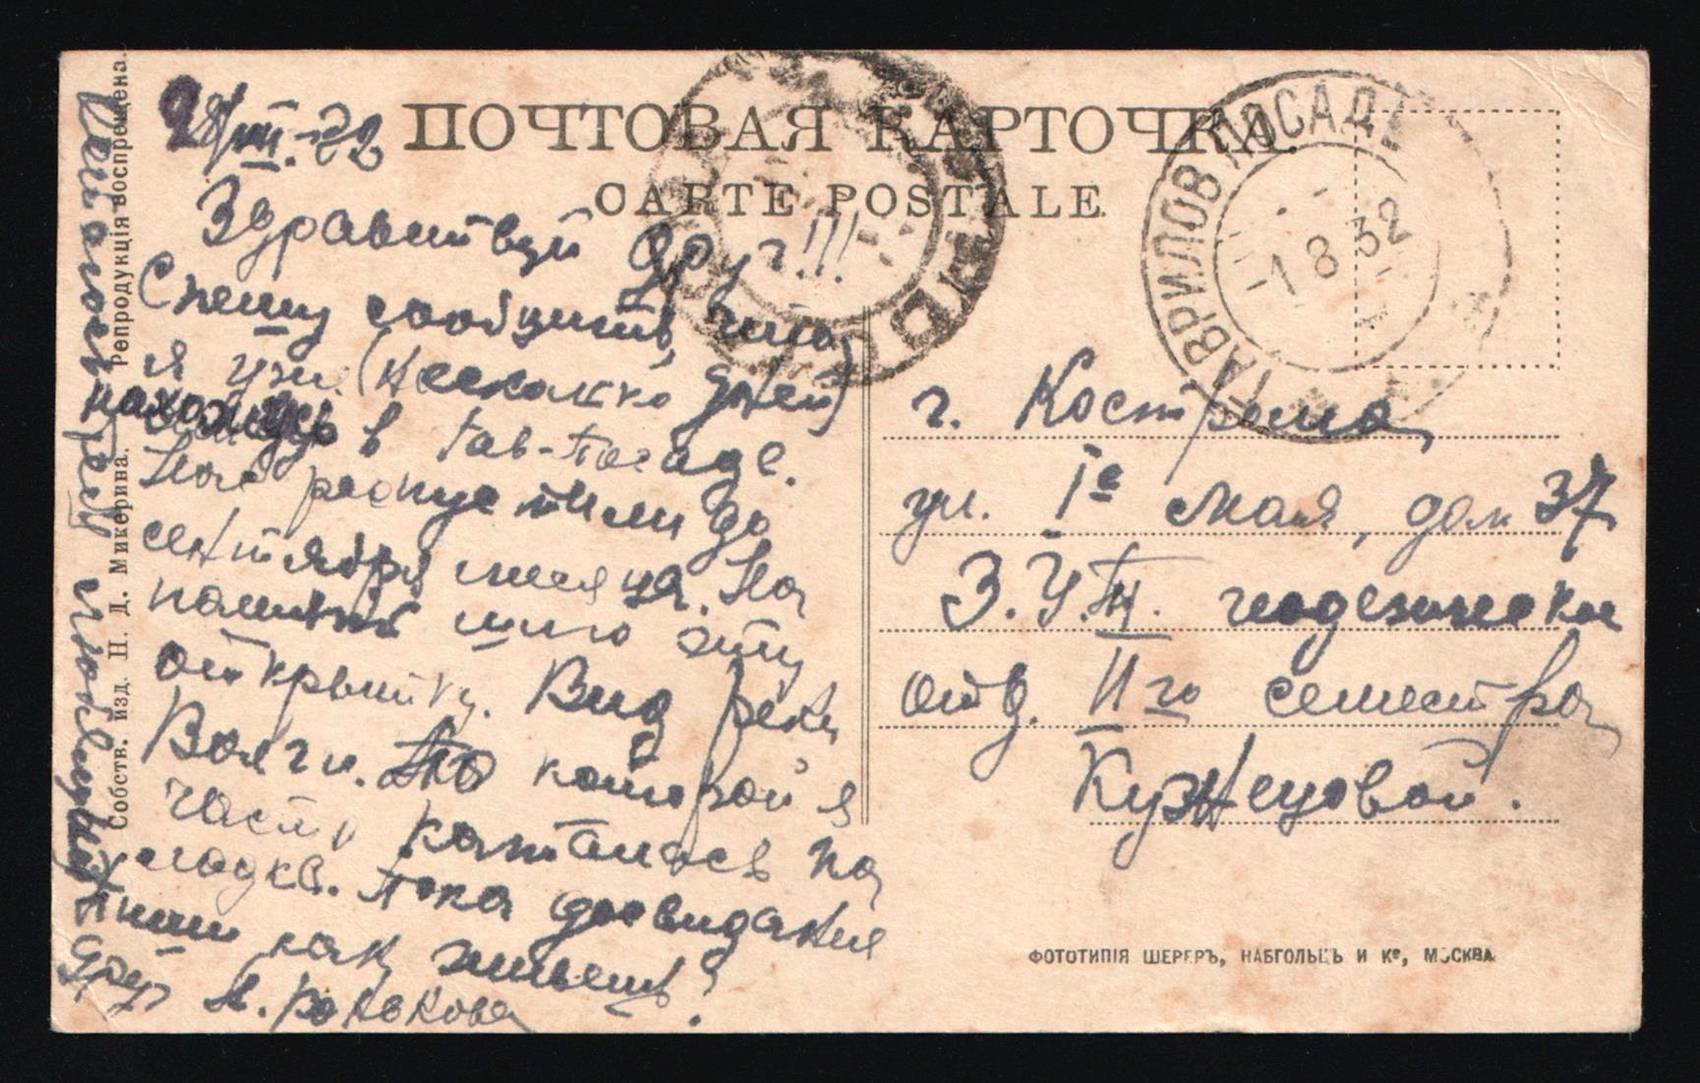 ПОЧТОВАЯ КАРТОЧКА.
CARTE POSTALE.
28/VII-32
Здравствуй друг!!!
Спешу сообщить, что
я уже (несколько дней)
нахожусь в Гав-Посаде.
Нас распустили до
сентября месяца. На
память шлю эту
открытку. Вид реки
Волги. По которой я
часто каталась на
лодке. Пока досвидания
пиши как живешь?
друг Н.
ГАВРИЛОВ ПОСАД
1 8 32
г. Кострома
ул. 1е Мая, дом 37
З.У.Т. геодезическ
отд. II го семестра
Кузнецовой.
Собств. изд. П. Д. Микерина. Репродукція воспрещена.
ФОТОТИПІЯ ШЕРЕРЪ, НАБГОЛЬЦЪ И Ко, МОСКВА